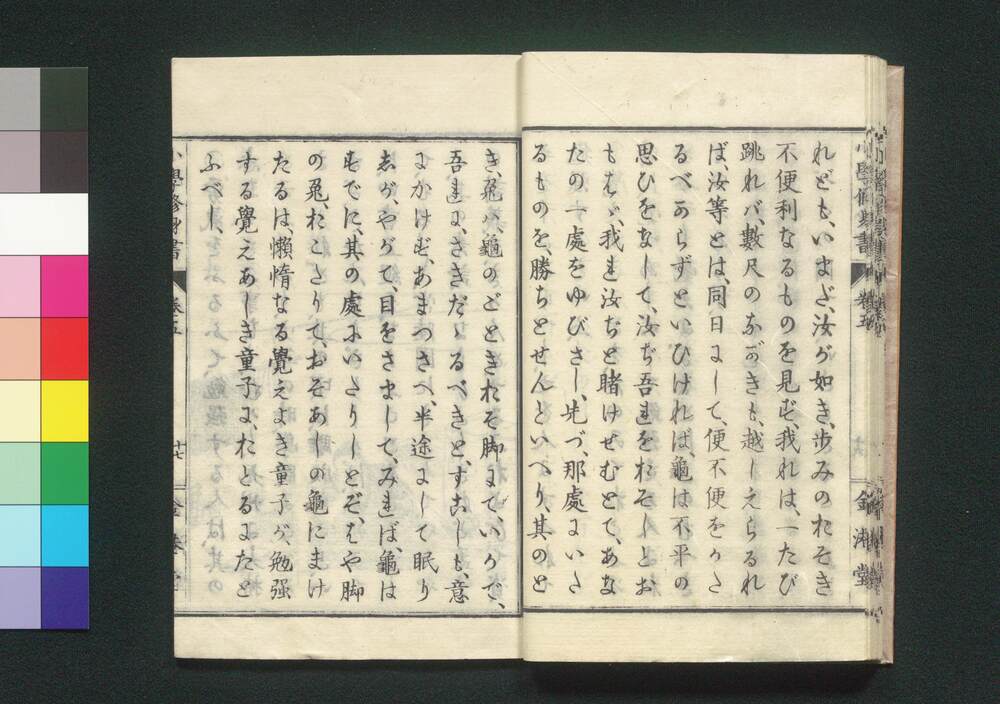 れども、いまだ、汝が如き、歩みのおそき
不便利なるものを見ず、我れは、一たび
跳れバ、數尺のながきも、越しえらるれ
ば汝等とは、同日にして、便不便をかた
るべからずといひければ、龜は不平の
思ひをなして、汝ぢ吾れをおそしとお
もはゞ、我れ汝ぢと賭けせむとて、あな
たの一處をゆびさし、先づ、那處にいた
るものを、勝ちとせんといへり、其のと
き、兎ハ、龜のごときおそ脚にて、いかで、
吾れに、さきだゝるべきと、すこしも、意
にかけず、あまつさへ、半途にして眠り
しが、やがて、目をさまして、みれば、龜は
すでに、其の處にいたりしとぞ、はや脚
の兎、おこたりて、おそあしの龜にまけ
たるは、懶惰なる覺えよき童子が、勉强
する覺えあしき童子に、おとるにたと
ふべし、
小學修身書
卷五
金港堂
學修身書
卷五
廿七